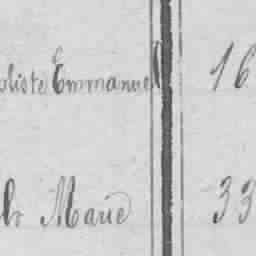 oliste Emmanuel 16
Marie 33